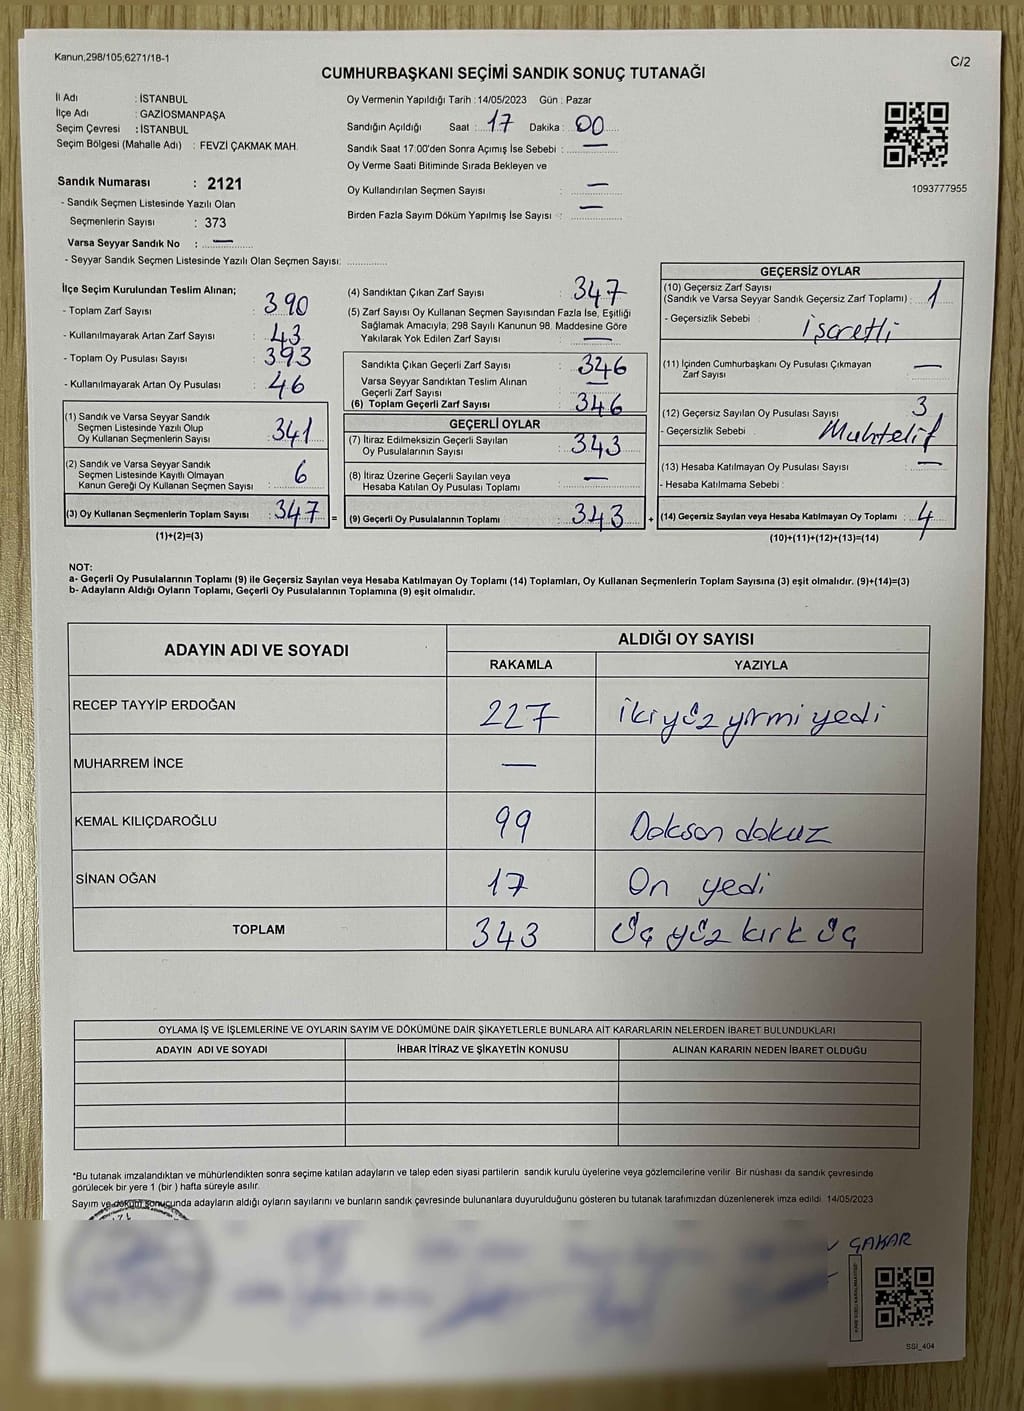 Kanun,298/105;6271/18-1
C/2
CUMHURBAŞKANI SEÇİMİ SANDIK SONUÇ TUTANAĞI
İl Adı : İSTANBUL
İlçe Adı : GAZİOSMANPAŞA
Seçim Çevresi : İSTANBUL
Seçim Bölgesi (Mahalle Adı) : FEVZİ ÇAKMAK MAH.
Sandık Numarası : 2121
- Sandık Seçmen Listesinde Yazılı Olan
Seçmenlerin Sayısı : 373
Varsa Seyyar Sandık No : —
- Seyyar Sandık Seçmen Listesinde Yazılı Olan Seçmen Sayısı:
Oy Vermenin Yapıldığı Tarih : 14/05/2023 Gün : Pazar
Sandığın Açıldığı Saat : 17 Dakika : 00
Sandık Saat 17:00'den Sonra Açımış İse Sebebi : —
Oy Verme Saati Bitiminde Sırada Bekleyen ve
Oy Kullandırılan Seçmen Sayısı : —
Birden Fazla Sayım Döküm Yapılmış İse Sayısı : —
1093777955
İlçe Seçim Kurulundan Teslim Alınan;
- Toplam Zarf Sayısı : 390
- Kullanılmayarak Artan Zarf Sayısı : 43
- Toplam Oy Pusulası Sayısı : 393
- Kullanılmayarak Artan Oy Pusulası : 46
(1) Sandık ve Varsa Seyyar Sandık
Seçmen Listesinde Yazılı Olup
Oy Kullanan Seçmenlerin Sayısı : 341
(2) Sandık ve Varsa Seyyar Sandık
Seçmen Listesinde Kayıtlı Olmayan
Kanun Gereği Oy Kullanan Seçmen Sayısı : 6
(3) Oy Kullanan Seçmenlerin Toplam Sayısı : 347 =
(1)+(2)=(3)
(4) Sandıktan Çıkan Zarf Sayısı : 347
(5) Zarf Sayısı Oy Kullanan Seçmen Sayısından Fazla İse, Eşitliği
Sağlamak Amacıyla, 298 Sayılı Kanunun 98. Maddesine Göre
Yakılarak Yok Edilen Zarf Sayısı : —
Sandıkta Çıkan Geçerli Zarf Sayısı : 346
Varsa Seyyar Sandıktan Teslim Alınan
Geçerli Zarf Sayısı : —
(6) Toplam Geçerli Zarf Sayısı : 346
GEÇERLİ OYLAR
(7) İtiraz Edilmeksizin Geçerli Sayılan
Oy Pusulalarının Sayısı : 343
(8) İtiraz Üzerine Geçerli Sayılan veya
Hesaba Katılan Oy Pusulası Toplamı : —
(9) Geçerli Oy Pusulalarının Toplamı : 343 +
GEÇERSİZ OYLAR
(10) Geçersiz Zarf Sayısı
(Sandık ve Varsa Seyyar Sandık Geçersiz Zarf Toplamı) : 1
- Geçersizlik Sebebi : işaretli
(11) İçinden Cumhurbaşkanı Oy Pusulası Çıkmayan
Zarf Sayısı : —
(12) Geçersiz Sayılan Oy Pusulası Sayısı : 3
- Geçersizlik Sebebi : Muhtelif
(13) Hesaba Katılmayan Oy Pusulası Sayısı : —
- Hesaba Katılmama Sebebi :
(14) Geçersiz Sayılan veya Hesaba Katılmayan Oy Toplamı : 4
(10)+(11)+(12)+(13)=(14)
NOT:
a- Geçerli Oy Pusulalarının Toplamı (9) ile Geçersiz Sayılan veya Hesaba Katılmayan Oy Toplamı (14) Toplamları, Oy Kullanan Seçmenlerin Toplam Sayısına (3) eşit olmalıdır. (9)+(14)=(3)
b- Adayların Aldığı Oyların Toplamı, Geçerli Oy Pusulalarının Toplamına (9) eşit olmalıdır.
ADAYIN ADI VE SOYADI
ALDIĞI OY SAYISI
RAKAMLA YAZIYLA
RECEP TAYYİP ERDOĞAN 227 ikiyüz yirmi yedi
MUHARREM İNCE —
KEMAL KILIÇDAROĞLU 99 Doksan dokuz
SİNAN OĞAN 17 On yedi
TOPLAM 343 Üç yüz kırk üç
OYLAMA İŞ VE İŞLEMLERİNE VE OYLARIN SAYIM VE DÖKÜMÜNE DAİR ŞİKAYETLERLE BUNLARA AİT KARARLARIN NELERDEN İBARET BULUNDUKLARI
ADAYIN ADI VE SOYADI İHBAR İTİRAZ VE ŞİKAYETİN KONUSU ALINAN KARARIN NEDEN İBARET OLDUĞU
*Bu tutanak imzalandıktan ve mühürlendikten sonra seçime katılan adayların ve talep eden siyasi partilerin sandık kurulu üyelerine veya gözlemcilerine verilir. Bir nüshası da sandık çevresinde
görülecek bir yere 1 (bir ) hafta süreyle asılır.
Sayım ve döküm sonucunda adayların aldığı oyların sayılarını ve bunların sandık çevresinde bulunanlara duyurulduğunu gösteren bu tutanak tarafımızdan düzenlenerek imza edildi. 14/05/2023
ÇAKAR
SSI_404